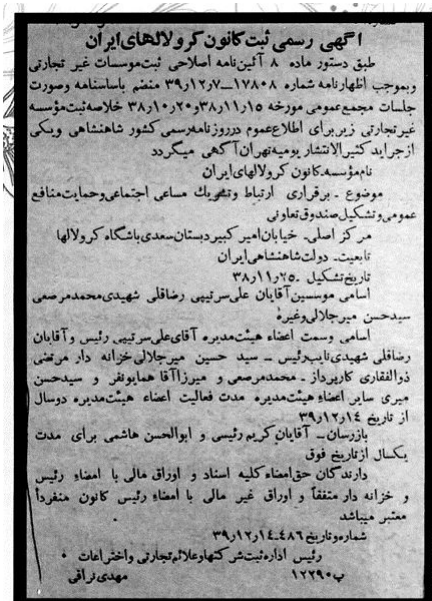 آگهی رسمی ثبت کانون کرولالهای ایران
طبق دستور ماده ۸ آئین‌نامه اصلاحی ثبت‌موسسات غیر تجارتی
وبموجب اظهارنامه شماره ۱۷۸۰۸ــ۳۹٫۱۲٫۷ منضم باساسنامه وصورت
جلسات مجمع‌عمومی مورخه ۳۸٫۱۱٫۱۵و۳۸٫۱۰٫۲۰ خلاصه‌ثبت‌مؤسسه
غیرتجارتی زیربرای اطلاع‌عموم درروزنامه‌رسمی کشور شاهنشاهی ویکی
از جراید کثیرالانتشار یومیه‌تهران آگهی میگردد
نام‌مؤسسه‌ـ‌کانون کرولالهای‌ایران
موضوع ـ برقراری ارتباط وتشریک مساعی اجتماعی‌وحمایت‌منافع
عمومی‌وتشکیل‌صندوق‌تعاونی
مرکز اصلی‌ـ خیابان‌امیرکبیردبستان‌سعدی‌باشگاه‌کرولالها
تابعیت‌ـ دولت‌شاهنشاهی‌ایران
تاریخ‌تشکیل ـ۳۸٫۱۱٫۲۵
اسامی موسسین‌آقایان علی‌سرتیپی رضاقلی شهیدی‌محمدمرصعی
سیدحسن میرجلالی‌وغیره
اسامی وسمت اعضاء هیئت‌مدیره آقای‌علی‌سرتیپی رئیس و آقایان
رضاقلی شهیدی‌نایب‌رئیس ـ سید حسین میرجلالی‌خزانه دار مرتضی
ذوالفقاری کارپرداز ـ محمدمرصعی و میرزاآقا همایونفر و سیدحسن
میری سایر اعضاء هیئت‌مدیره مدت فعالیت اعضاء هیئت‌مدیره دوسال
از تاریخ ۳۹٫۱۲٫۱۴
بازرسان‌ـ آقایان‌کریم‌رئیسی و ابوالحسن هاشمی برای مدت
یکسال ازتاریخ فوق
دارندگان حق‌امضاءکلیه اسناد و اوراق مالی با امضاء رئیس
و خزانه دار متفقاً و اوراق غیر مالی با امضاء رئیس کانون منفرداً
معتبر میباشد
شماره‌وتاریخ۴۸۶ـ۳۹٫۱۲٫۱۴
رئیس اداره‌ثبت‌شرکتها‌وعلائم‌تجارتی‌واختراعات
پ۱۲۲۹۰ مهدی‌نراقی